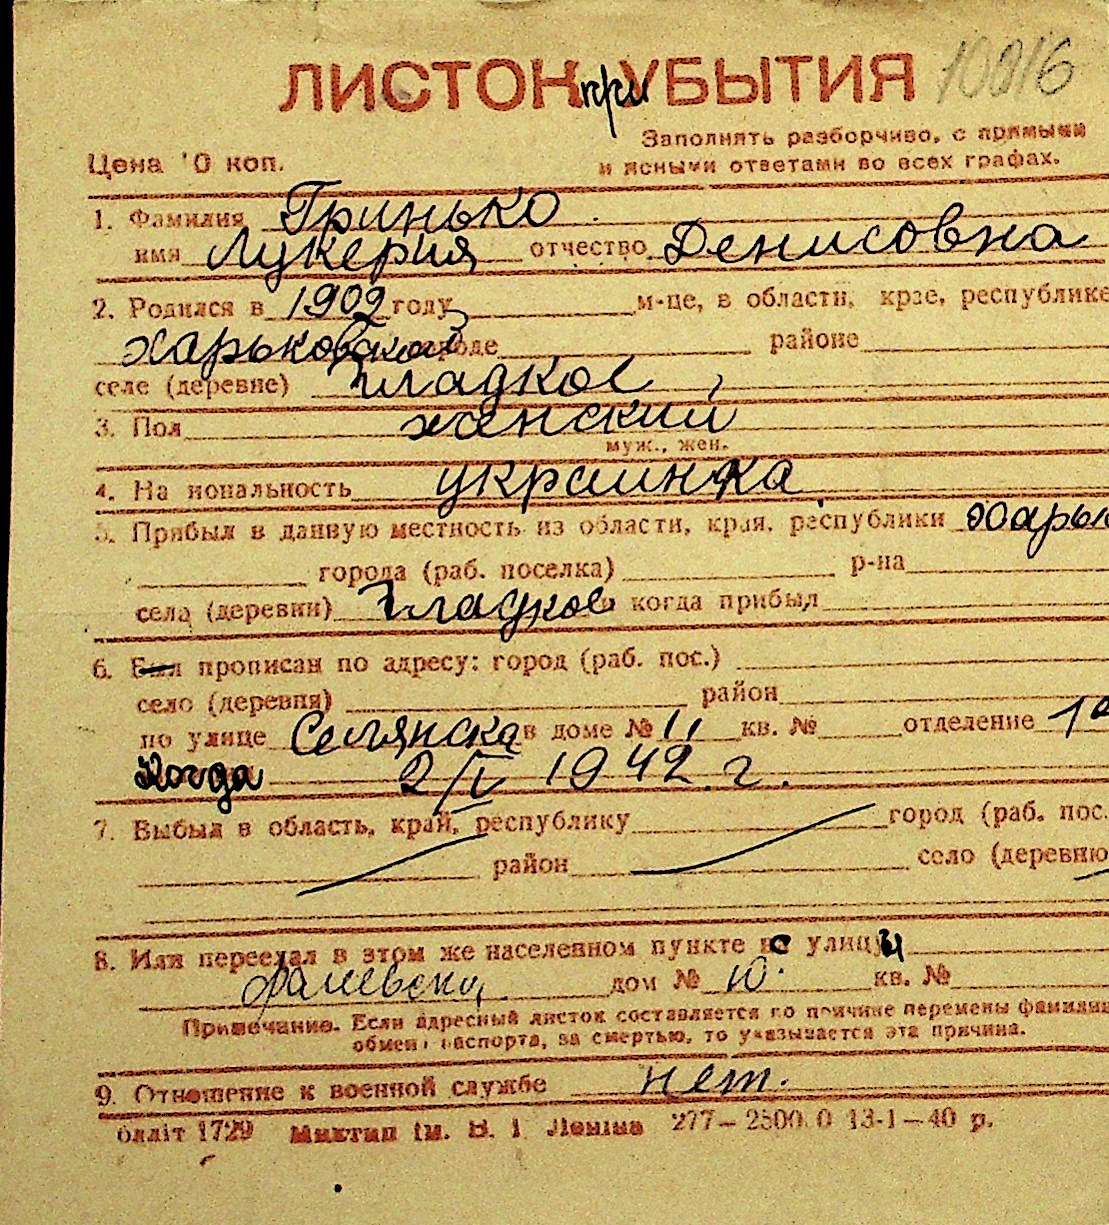 ЛИСТОК при УБЫТИЯ 10016
Заполнять разборчиво, с прямыми
Цена 10 коп. и ясными ответами во всех графах.
1. Фамилия Гринько
имя Лукерия отчество Денисовна
2. Родился в 1902 году м-це, в области, крае, республике
Харьковской городе районе
селе (деревне) Гладкое
3. Пол женский
муж., жен.
4. Национальность украинка
5. Прибыл в данную местность из области, края, республики Харьк
города (раб. поселка) р-на
села (деревни) Гладкое и когда прибыл
6. Был прописан по адресу: город (раб. пос.)
село (деревня) район
по улице Селянска в доме № 11 кв. № отделение 14
Когда 2/V 1942 г.
7. Выбыл в область, край, республику город (раб. пос.
район село (деревню
8. Или переехал в этом же населенном пункте с улицы
дом № 10. кв. №
Примечание. Если адресный листок составляется по причине перемены фамилии
обмена паспорта, за смертью, то указывается эта причина.
9. Отношение к военной службе нет.
Блліт 1729 Миктип ім. В. І Леніна 277—2500.0 13-1—40 р.